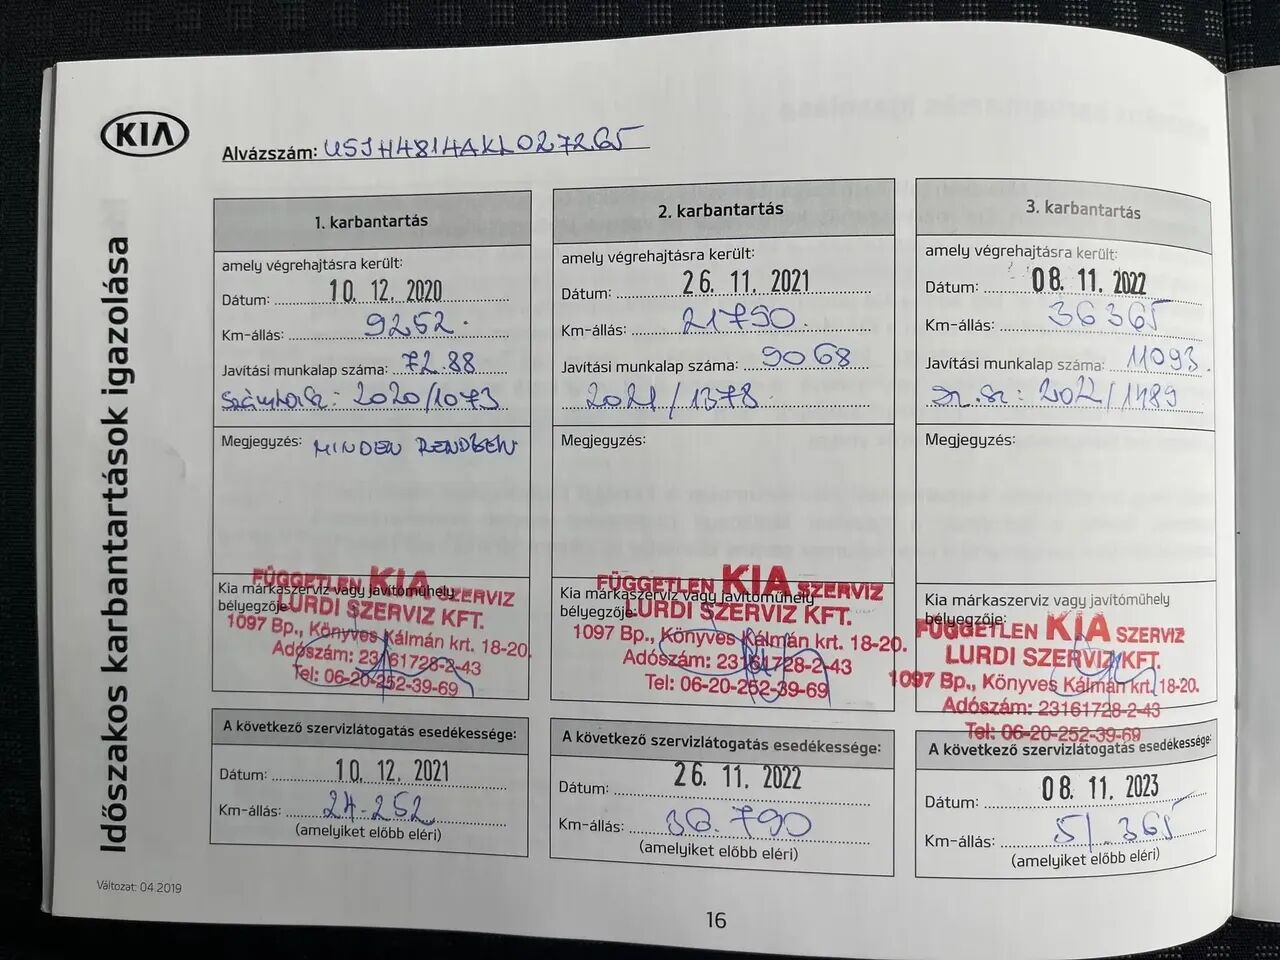 KIA
Alvázszám: U5JH4814AKL027265
Időszakos karbantartások igazolása
1. karbantartás
amely végrehajtásra került:
Dátum: 10. 12. 2020
Km-állás: 9252.
Javítási munkalap száma: 72.88
Számla sz: 2020/1073
Megjegyzés: MINDEN RENDBEN
Kia márkaszerviz vagy javítóműhely
bélyegzője:
FÜGGETLEN KIA SZERVIZ
LURDI SZERVIZ KFT.
1097 Bp., Könyves Kálmán krt. 18-20.
Adószám: 23161728-2-43
Tel: 06-20-252-39-69
A következő szervizlátogatás esedékessége:
Dátum: 10. 12. 2021
Km-állás: 24.252
(amelyiket előbb eléri)
2. karbantartás
amely végrehajtásra került:
Dátum: 26. 11. 2021
Km-állás: 21790.
Javítási munkalap száma: 9068
2021/1378
Megjegyzés:
Kia márkaszerviz vagy javítóműhely
bélyegzője:
FÜGGETLEN KIA SZERVIZ
LURDI SZERVIZ KFT.
1097 Bp., Könyves Kálmán krt. 18-20.
Adószám: 23161728-2-43
Tel: 06-20-252-39-69
A következő szervizlátogatás esedékessége:
Dátum: 26. 11. 2022
Km-állás: 36.790
(amelyiket előbb eléri)
3. karbantartás
amely végrehajtásra került:
Dátum: 08. 11. 2022
Km-állás: 36365
Javítási munkalap száma: 11093.
sz.sz: 2022/1489
Megjegyzés:
Kia márkaszerviz vagy javítóműhely
bélyegzője:
FÜGGETLEN KIA SZERVIZ
LURDI SZERVIZ KFT.
1097 Bp., Könyves Kálmán krt. 18-20.
Adószám: 23161728-2-43
Tel: 06-20-252-39-69
A következő szervizlátogatás esedékessége:
Dátum: 08. 11. 2023
Km-állás: 51.365
(amelyiket előbb eléri)
Változat: 04.2019
16